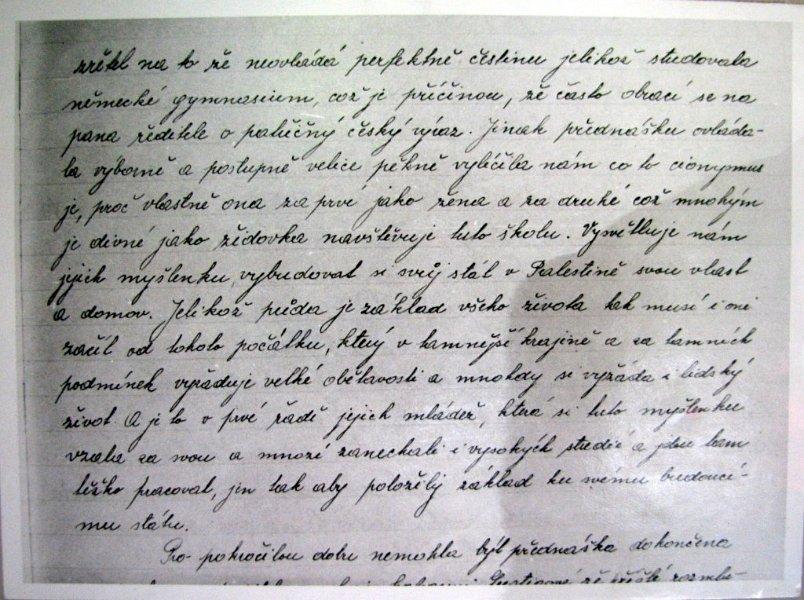 zřekl na to že neovládá perfektně češtinu jelikož studovala
německé gymnasium, což je příčinou, že často obrací se na
pana ředitele o patřičný český výraz. Jinak přednášku ovláda-
la výborně a postupně velice pěkně vylíčila nám co to cionysmus
je, proč vlastně ona za prvé jako žena a za druhé což mnohým
je divné jako židovka navštěvuje tuto školu. Vysvětluje nám
jejich myšlenku, vybudovat si svůj stát v Palestině svou vlast
a domov. Jelikož půda je základ všeho života tak musí i oni
začít od tohoto počátku, který v tamnější krajině a za tamních
podmínek vyžaduje velké obětavosti a mnohdy si vyžádá i lidský
život. A je to v prvé řadě jejich mládež, která si tuto myšlenku
vzala za svou a mnozí zanechali i vysokých studií a jdou tam
těžko pracovat, jen tak aby položily základ ku svému budoucí-
mu státu.
Pro pokročilou dobu nemohla být přednáška dokončena
že příště